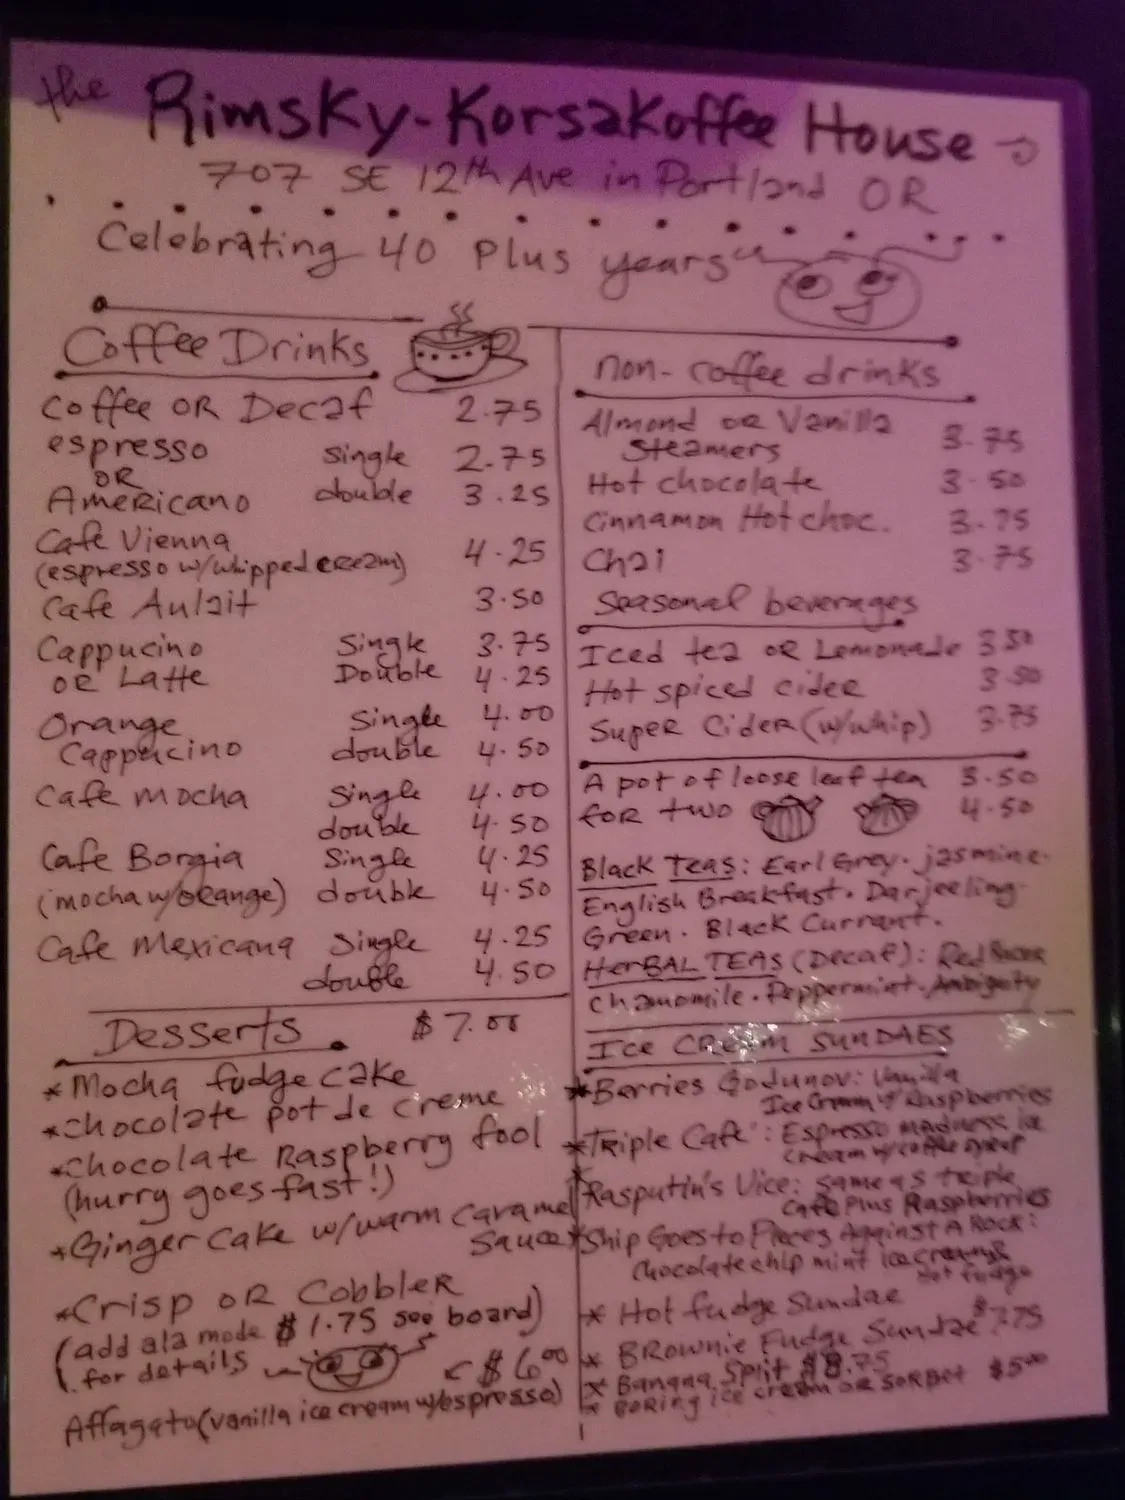 the Rimsky-Korsakoffee House
707 SE 12th Ave in Portland OR
Celebrating 40 Plus years
Coffee Drinks
Coffee OR Decaf 2.75
espresso single 2.75
OR
Americano double 3.25
Cafe Vienna
(espresso w/whipped cream) 4.25
Cafe Aulait 3.50
Cappucino Single 3.75
OR Latte Double 4.25
Orange Single 4.00
Cappucino double 4.50
Cafe mocha Single 4.00
double 4.50
Cafe Borgia Single 4.25
(mocha w/orange) double 4.50
Cafe Mexicana Single 4.25
double 4.50
Desserts $7.00
*Mocha fudge cake
*Chocolate pot de creme
*Chocolate Raspberry fool
(hurry goes fast!)
*Ginger cake w/warm caramel
sauce
*Crisp OR Cobbler
(add ala mode $1.75 see board)
for details
< $6.00
Affagato (vanilla ice cream w/espresso)
non-coffee drinks
Almond OR Vanilla
Steamers 3.75
Hot chocolate 3.50
Cinnamon Hot choc. 3.75
Chai 3.75
Seasonal beverages
Iced tea OR Lemonade 3.50
Hot spiced cider 3.50
Super Cider (w/whip) 3.75
A pot of loose leaf tea 3.50
for two 4.50
Black Teas: Earl Grey. jasmine.
English Breakfast. Darjeeling.
Green. Black Currant.
HerBAL TEAS (Decaf): Red
Chamomile. Peppermint. Ambiguity
Ice Cream SunDAES
*Borries Godunov: Vanilla
Ice Cream w/ Raspberries
*Triple Cafe: Espresso madness ice
cream w/coffee syrup
*Rasputin's Vice: same as triple
cafe Plus Raspberries
*Ship Goes to Pieces Against A Rock:
Chocolate chip mint ice cream &
Hot fudge
* Hot fudge Sundae
* Brownie Fudge Sundae $7.75
* Banana Split $8.75
* Boring ice cream or sorbet $5.00